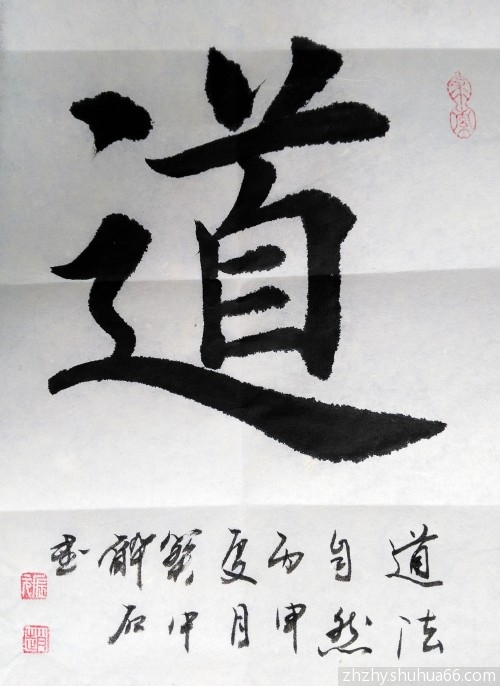 道
道法
自然
丙申
夏月
冀中
石
书
zhzhyshuhua66.com